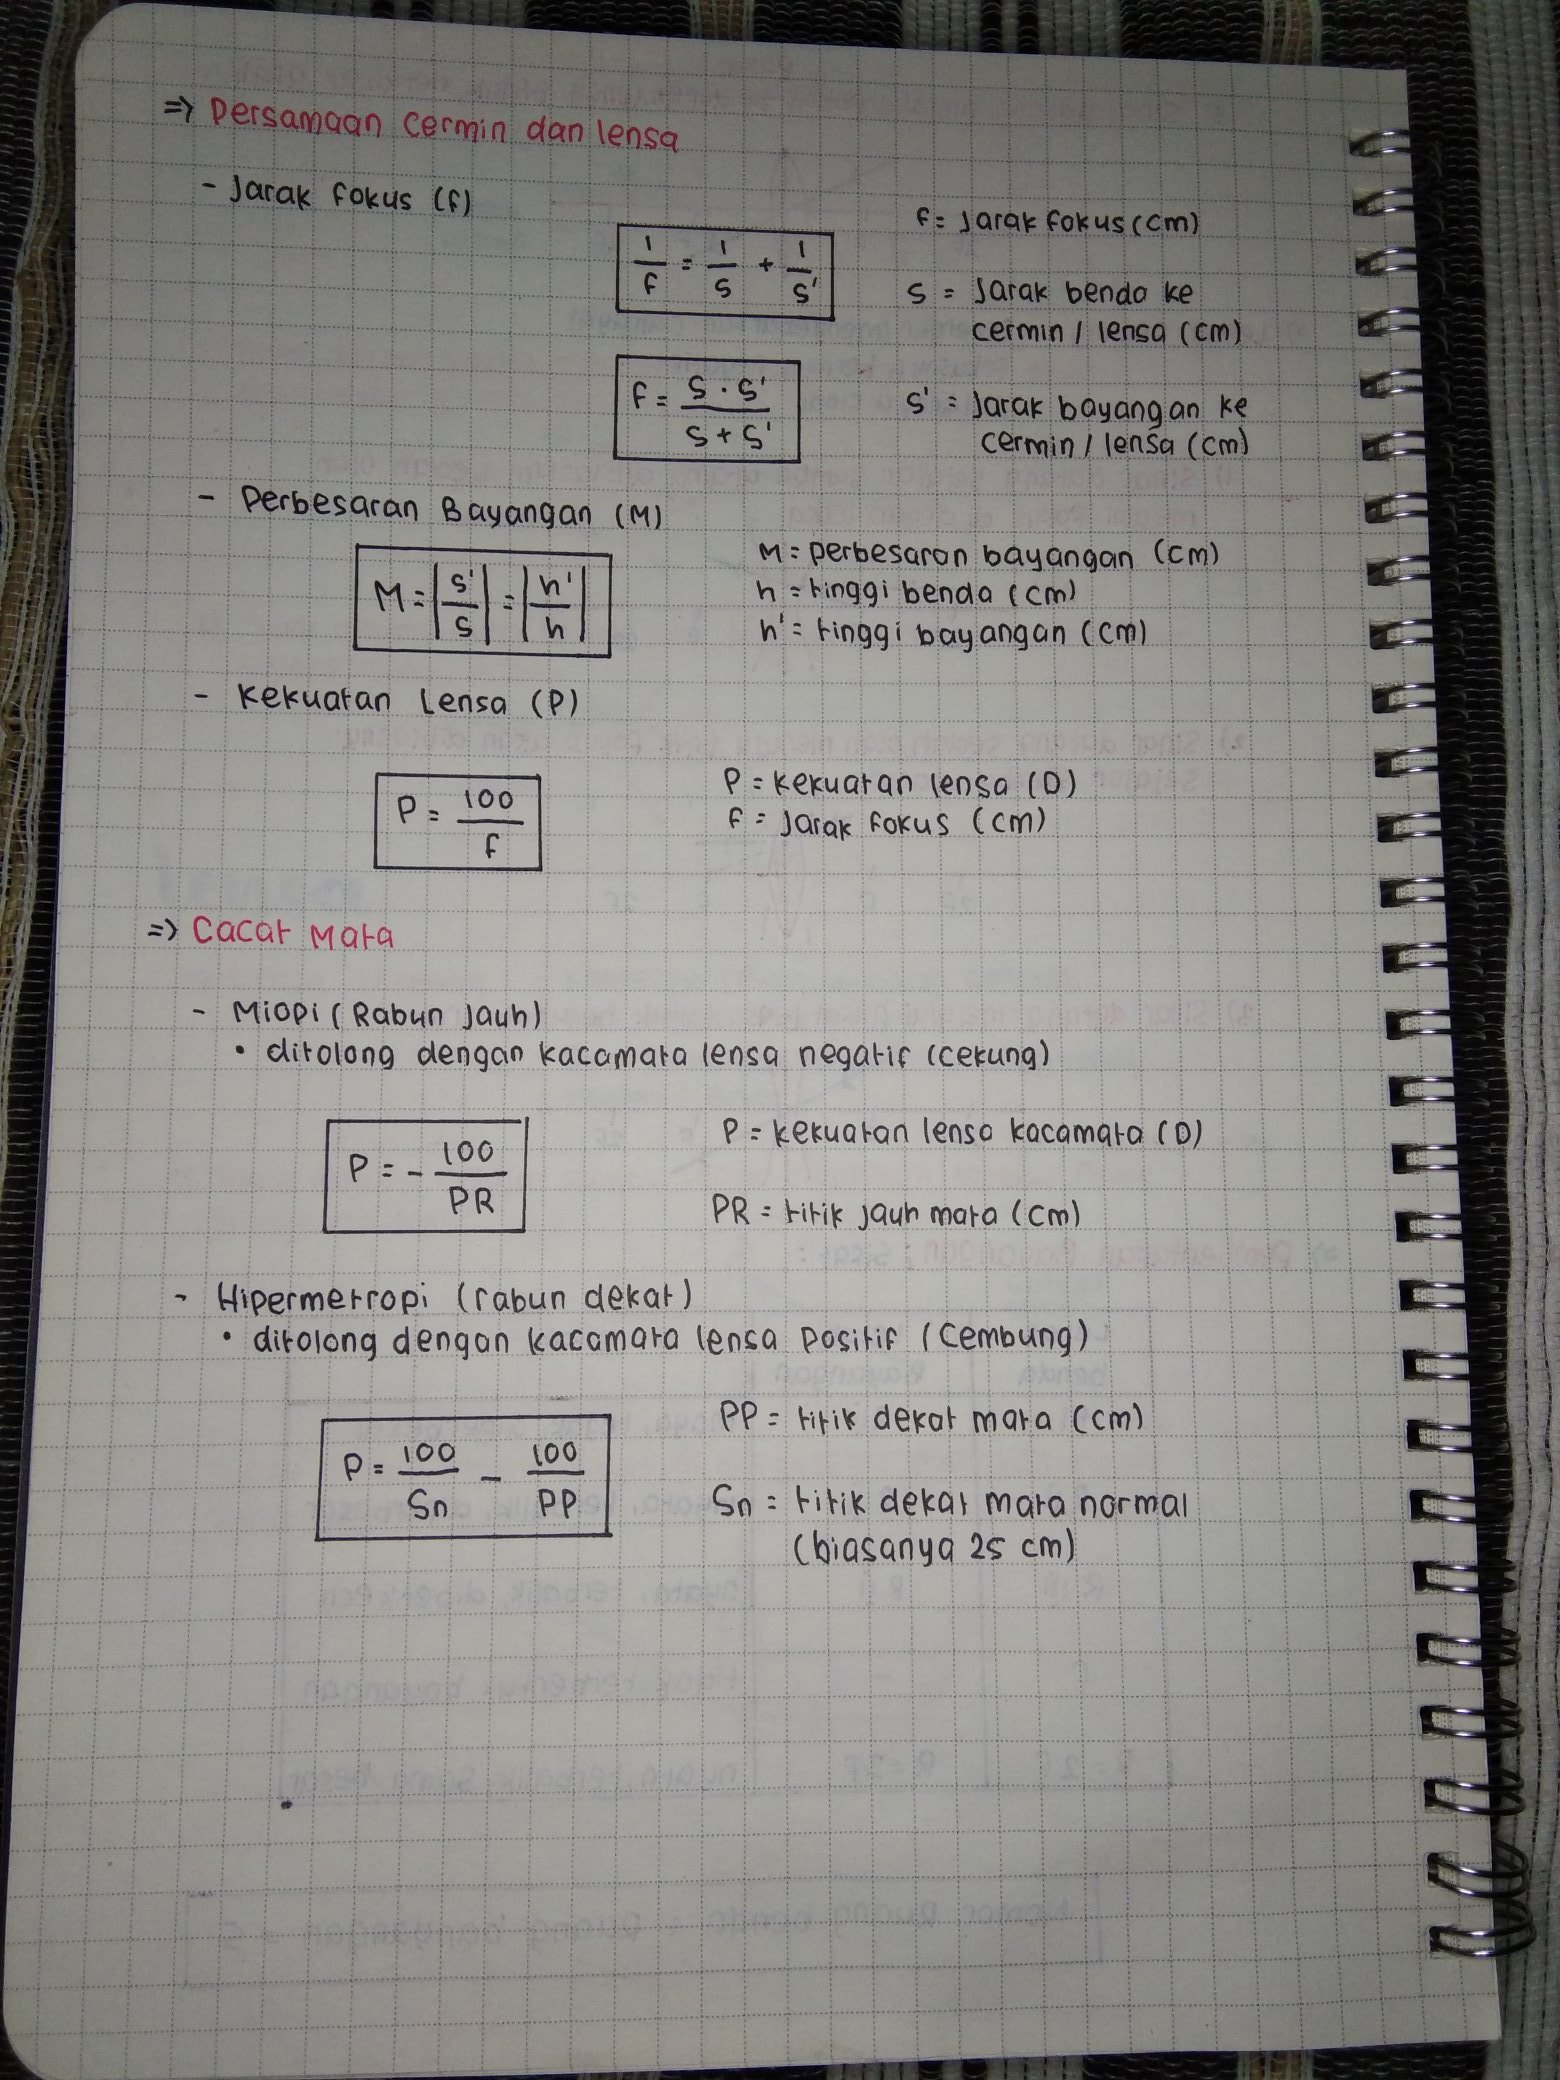 => Persamaan cermin dan lensa
- Jarak fokus (f)
1/f = 1/s + 1/s'
f = s · s' / s + s'
f = Jarak fokus (cm)
s = Jarak benda ke
cermin / lensa (cm)
s' = Jarak bayangan ke
cermin / lensa (cm)
- Perbesaran Bayangan (M)
M = |s'/s| = |h'/h|
M = perbesaran bayangan (cm)
h = tinggi benda (cm)
h' = tinggi bayangan (cm)
- Kekuatan Lensa (P)
P = 100/f
P = kekuatan lensa (D)
f = Jarak fokus (cm)
=> Cacat Mata
- Miopi (Rabun Jauh)
• ditolong dengan kacamata lensa negatif (cekung)
P = - 100/PR
P = kekuatan lensa kacamata (D)
PR = titik jauh mata (cm)
- Hipermetropi (rabun dekat)
• ditolong dengan kacamata lensa positif (Cembung)
P = 100/Sn - 100/PP
PP = titik dekat mata (cm)
Sn = titik dekat mata normal
(biasanya 25 cm)